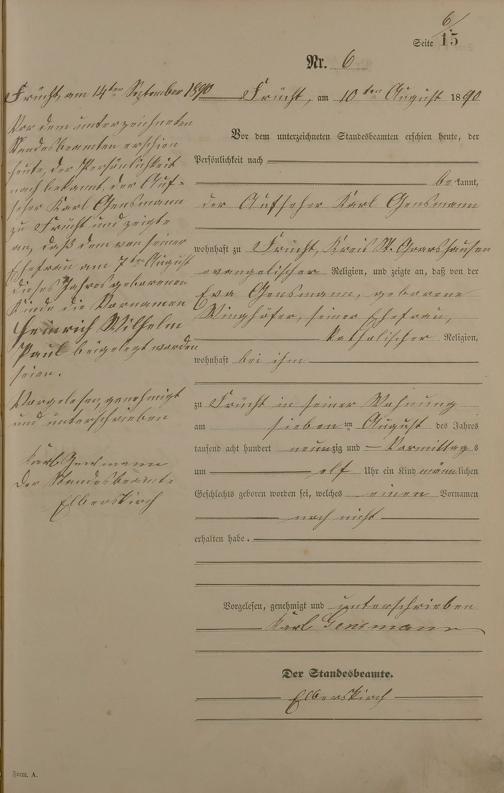 6/
Seite 15
Nr. 6
Frücht, am 10ten August 1890
Vor dem unterzeichneten Standesbeamten erschien heute, der
Persönlichkeit nach
bekannt,
der Aufseher Karl Gensmann
wohnhaft zu Frücht, Kreis St. Goarshausen
evangelischer Religion, und zeigte an, daß von der
Eva Gensmann, geborene
seiner Ehefrau,
katholischer Religion,
wohnhaft bei ihm
zu Frücht in seiner Wohnung
am sieben ten August des Jahres
tausend acht hundert neunzig und – Vormittags
um elf Uhr ein Kind männlichen
Geschlechts geboren worden sei, welches einen Vornamen
noch nicht
erhalten habe.
Vorgelesen, genehmigt und unterschrieben
Karl Gensmann
Der Standesbeamte.
Elberskirch
Frücht, am 14ten September 1890
Vor dem unterzeichneten
Standesbeamten erschien
heute, der Persönlichkeit
nach bekannt, der Auf-
seher Karl Gensmann
zu Frücht und zeigte
an, daß dem von seiner
Ehefrau am 7ten August
dieses Jahres geborenen
Kinde die Vornamen
Heinrich Wilhelm
Paul beigelegt worden
seien.
Vorgelesen, genehmigt
und unterschrieben
Karl Gensmann
Der Standesbeamte
Elberskirch
Form. A.